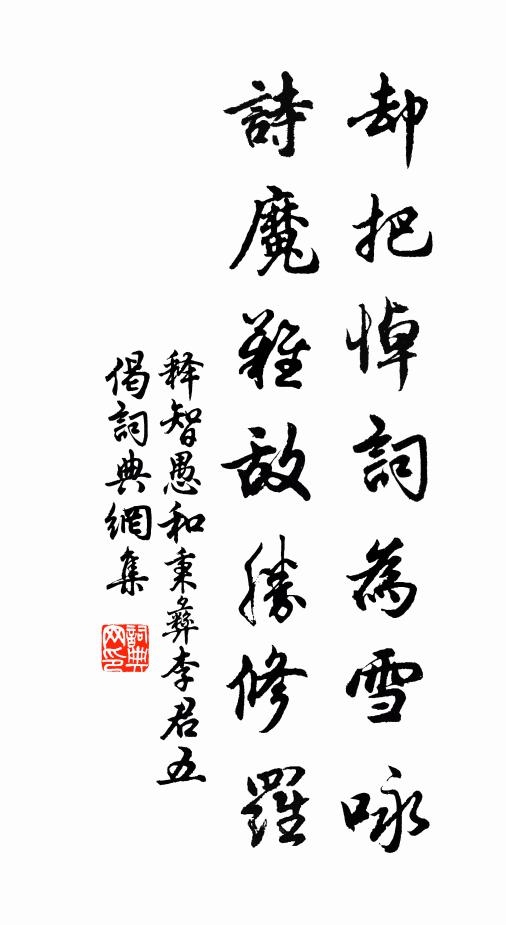 却把悼詞為雪咏
詩魔難敵勝修羅
释智愚和秉彝李君五
偈詞典網集
詞典网印